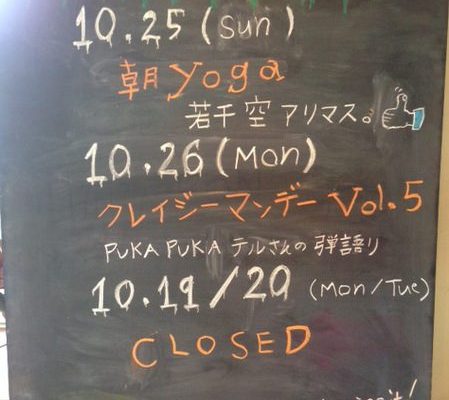 10.25 (Sun)
朝yoga
若干空アリマス。
10.26 (Mon)
クレイジーマンデー Vol.5
PUKA PUKA テルさんの弾語り
10.19/20 (Mon/Tue)
CLOSED